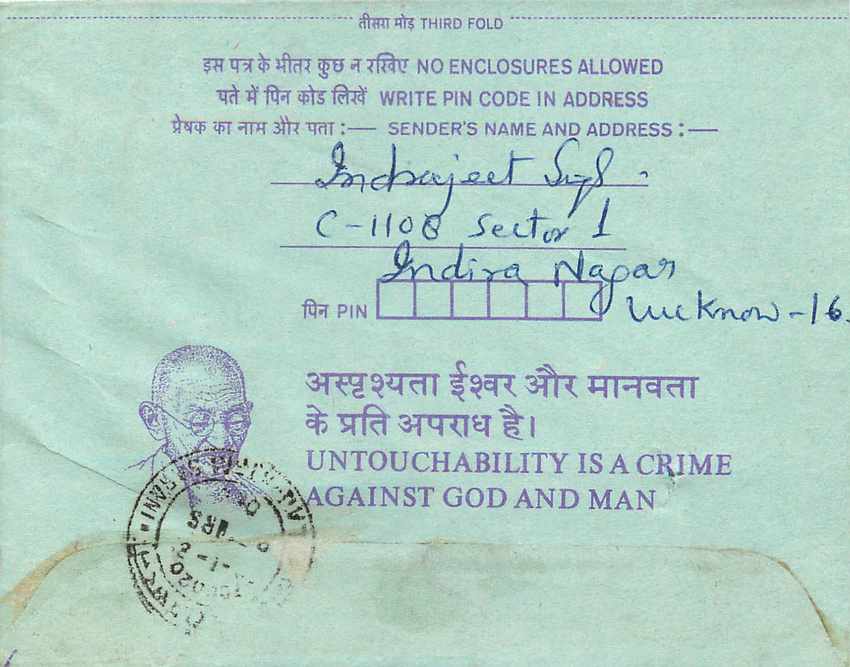 तीसरा मोड़ THIRD FOLD
इस पत्र के भीतर कुछ न रखिए NO ENCLOSURES ALLOWED
पते में पिन कोड लिखें WRITE PIN CODE IN ADDRESS
प्रेषक का नाम और पता :— SENDER'S NAME AND ADDRESS :—
Indrajeet Singh
C-1108 Sector 1
Indira Nagar
पिन PIN Lucknow-16.
अस्पृश्यता ईश्वर और मानवता
के प्रति अपराध है।
UNTOUCHABILITY IS A CRIME
AGAINST GOD AND MAN